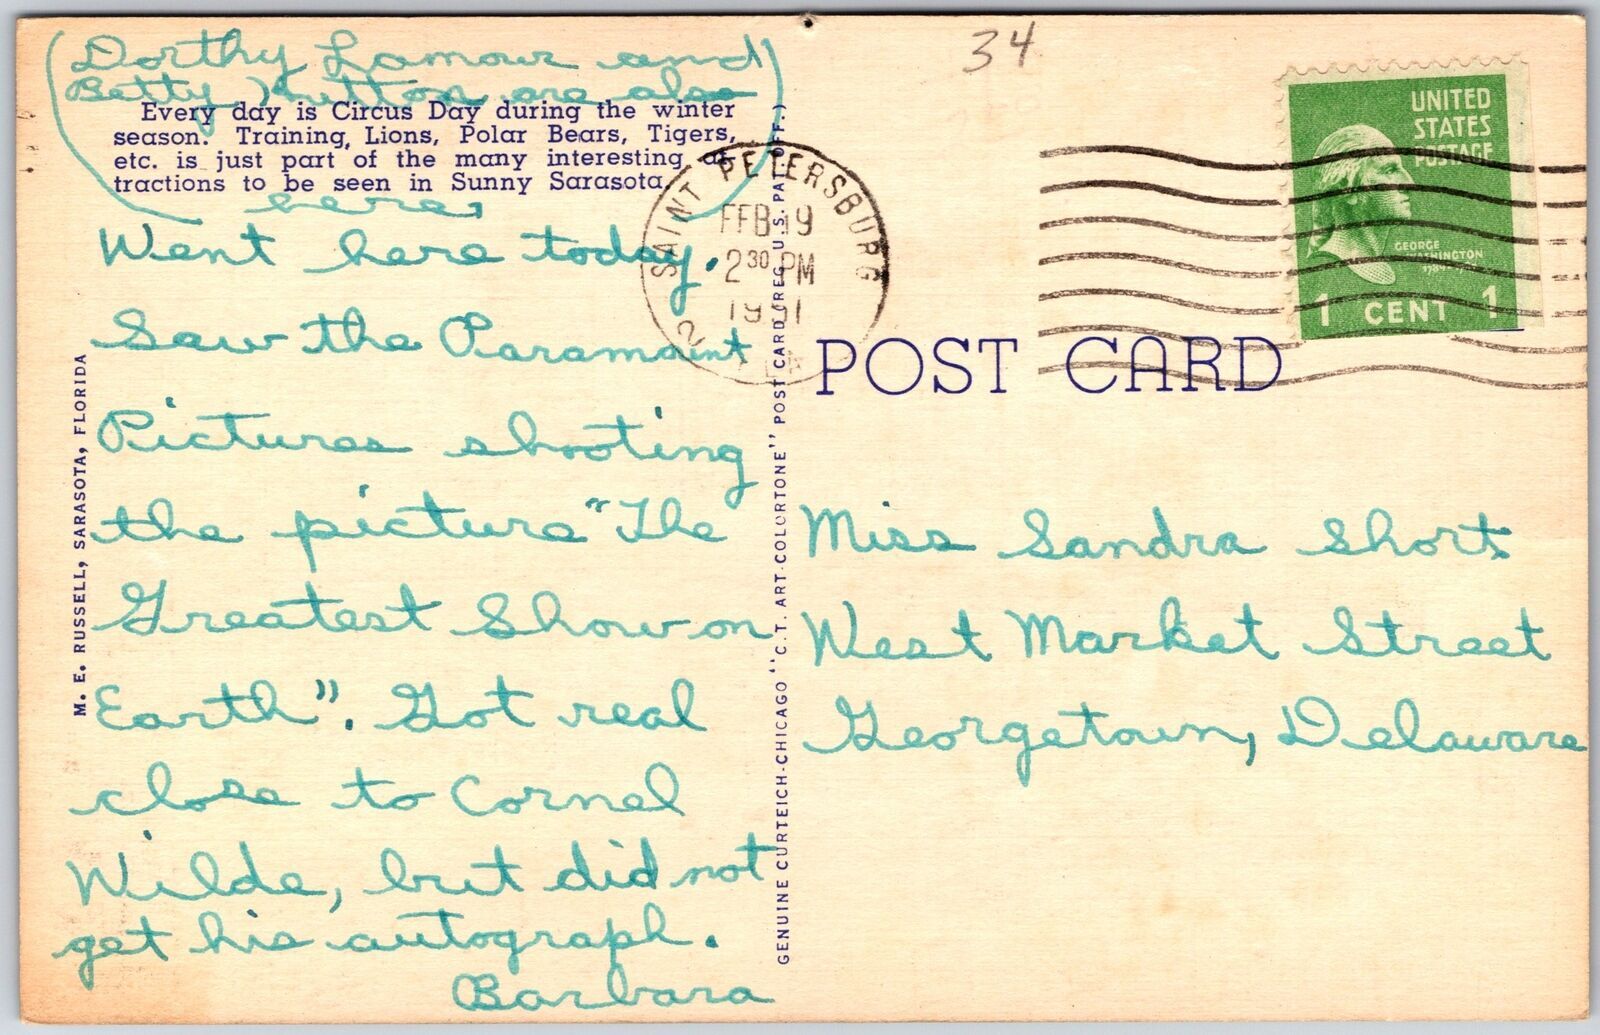 (Dorthy Lamour and
Betty Hutton are also
here)
Every day is Circus Day during the winter
season. Training, Lions, Polar Bears, Tigers,
etc. is just part of the many interesting at-
tractions to be seen in Sunny Sarasota.
Went here today.
Saw the Paramount
Pictures shooting
the picture "The
Greatest Show on
Earth". Got real
close to Cornel
Wilde, but did not
get his autograph.
Barbara
M. E. RUSSELL, SARASOTA, FLORIDA
GENUINE CURTEICH-CHICAGO "C. T. ART-COLORTONE" POST CARD (REG. U.S. PAT. OFF.)
34
SAINT PETERSBURG
FEB 19
2 30 PM
1951
2
POST CARD
UNITED
STATES
POSTAGE
GEORGE
WASHINGTON
1 CENT 1
Miss Sandra Short
West Market Street
Georgetown, Delaware